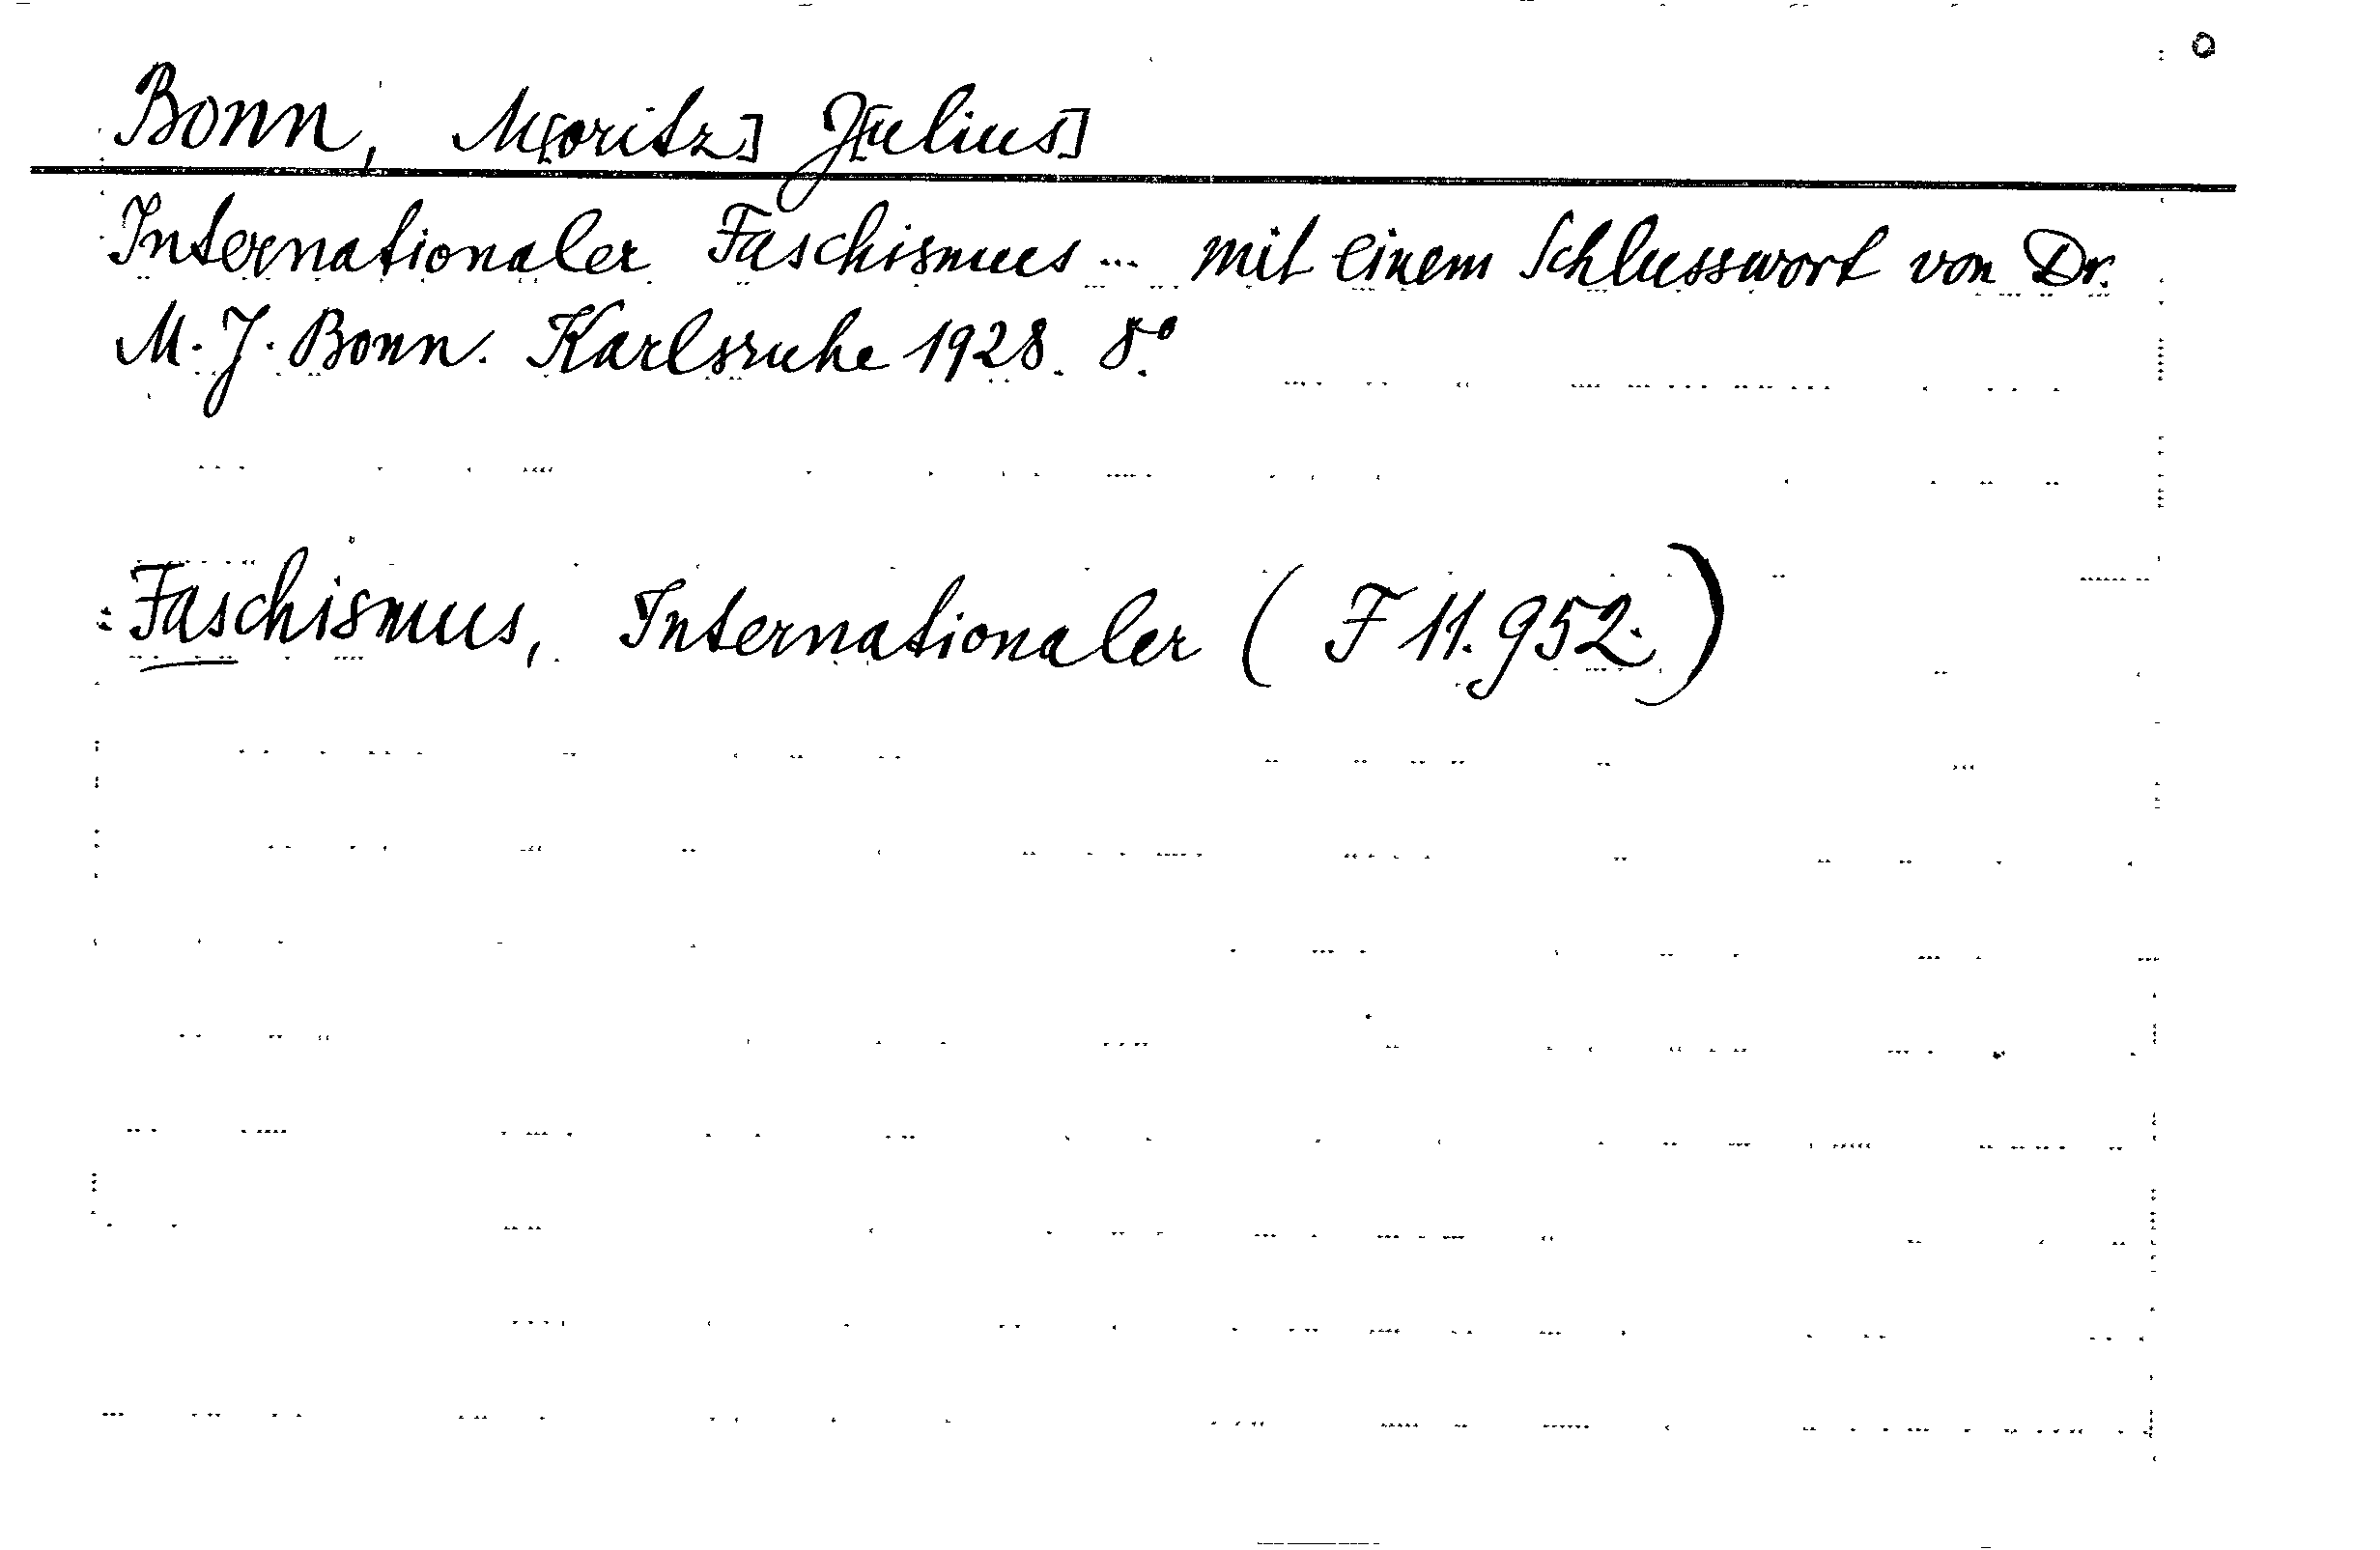 Bonn, M[oritz] J[ulius]
Internationaler Faschismus ... mit einem Schlusswort von Dr.
M. J. Bonn. Karlsruhe 1928. 8.º
Faschismus, Internationaler ( F 11.952.)